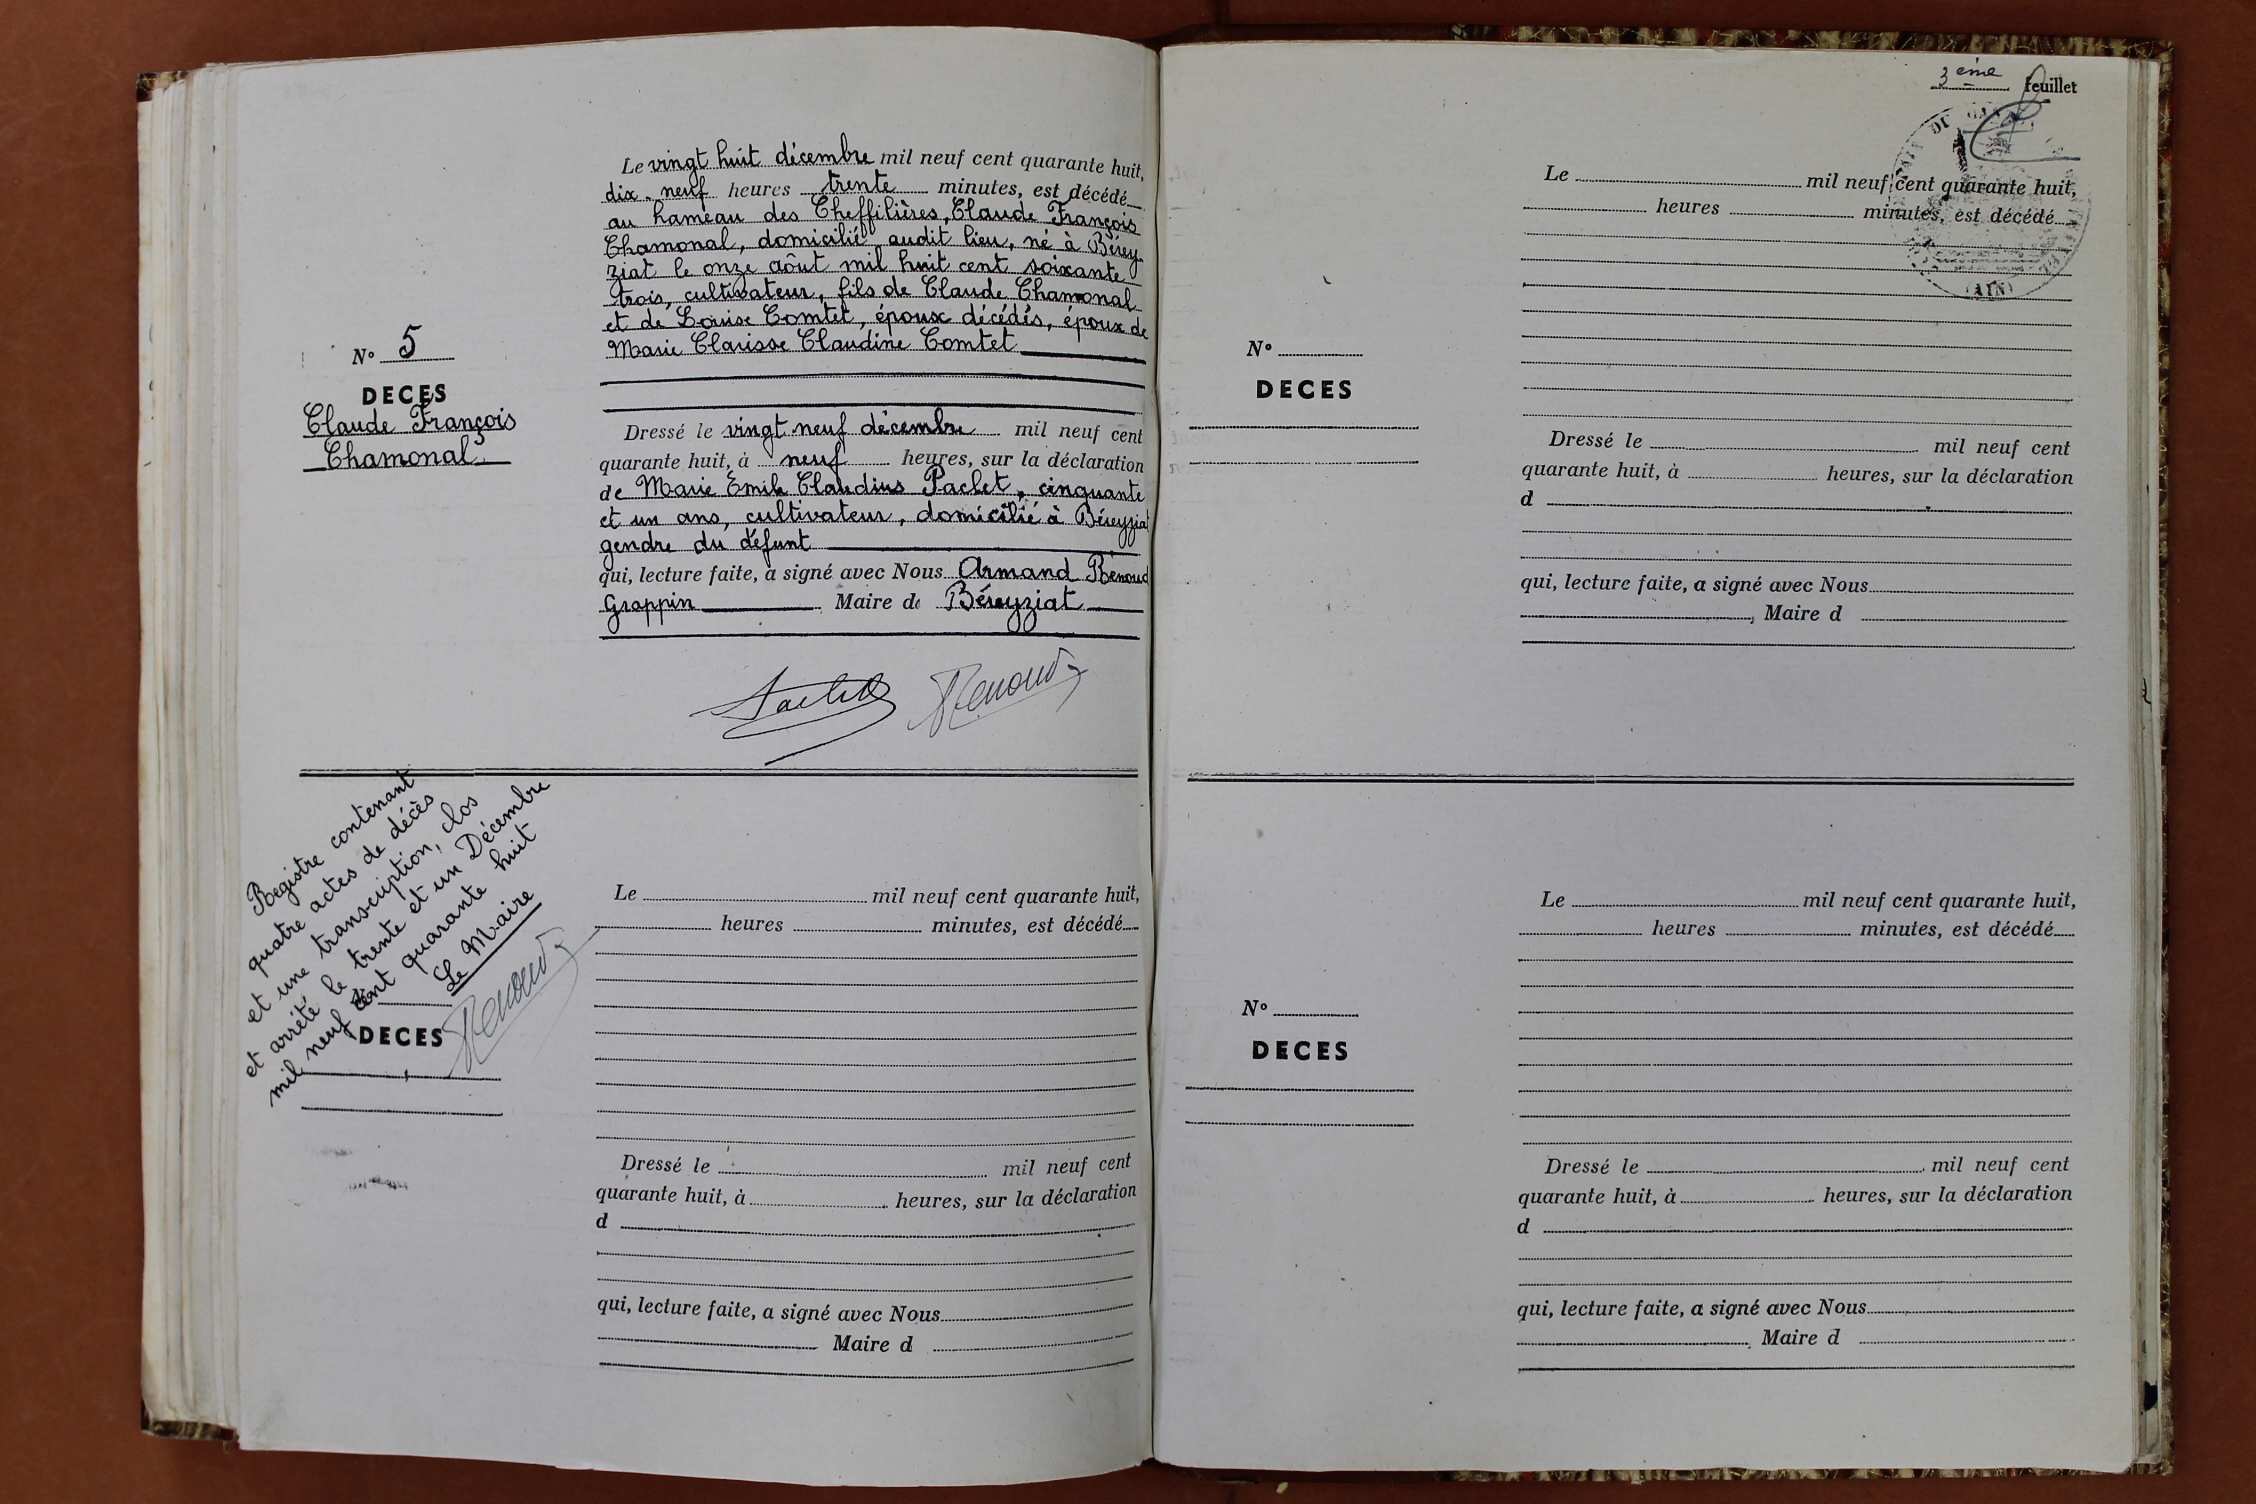 Le vingt huit décembre mil neuf cent quarante huit,
dix neuf heures trente minutes, est décédé
au hameau des Cheffilières, Claude François
Chamonal, domicilié audit lieu, né à Bérey-
ziat le onze août mil huit cent soixante
trois, cultivateur, fils de Claude Chamonal
et de Louise Comtet, époux décédés, époux de
Marie Clarisse Claudine Comtet
N° 5
DECES
Claude François
Chamonal
Dressé le vingt neuf décembre mil neuf cent
quarante huit, à neuf heures, sur la déclaration
de Marie Émile Claudius Paclet, cinquante
et un ans, cultivateur, domicilié à Béreyziat
gendre du défunt
qui, lecture faite, a signé avec Nous Armand Renoud
Grappin Maire de Béreyziat
Paclet Renoud
Registre contenant
quatre actes de décès
et une transcription, clos
et arrêté le trente et un Décembre
mil neuf cent quarante huit
Le Maire
Renoud
DECES
Le mil neuf cent quarante huit,
heures minutes, est décédé
Dressé le mil neuf cent
quarante huit, à heures, sur la déclaration
d
qui, lecture faite, a signé avec Nous
Maire d
3ème feuillet
(AIN)
Le mil neuf cent quarante huit,
heures minutes, est décédé
N°
DECES
Dressé le mil neuf cent
quarante huit, à heures, sur la déclaration
d
qui, lecture faite, a signé avec Nous
, Maire d
Le mil neuf cent quarante huit,
heures minutes, est décédé
N°
DECES
Dressé le mil neuf cent
quarante huit, à heures, sur la déclaration
d
qui, lecture faite, a signé avec Nous
Maire d